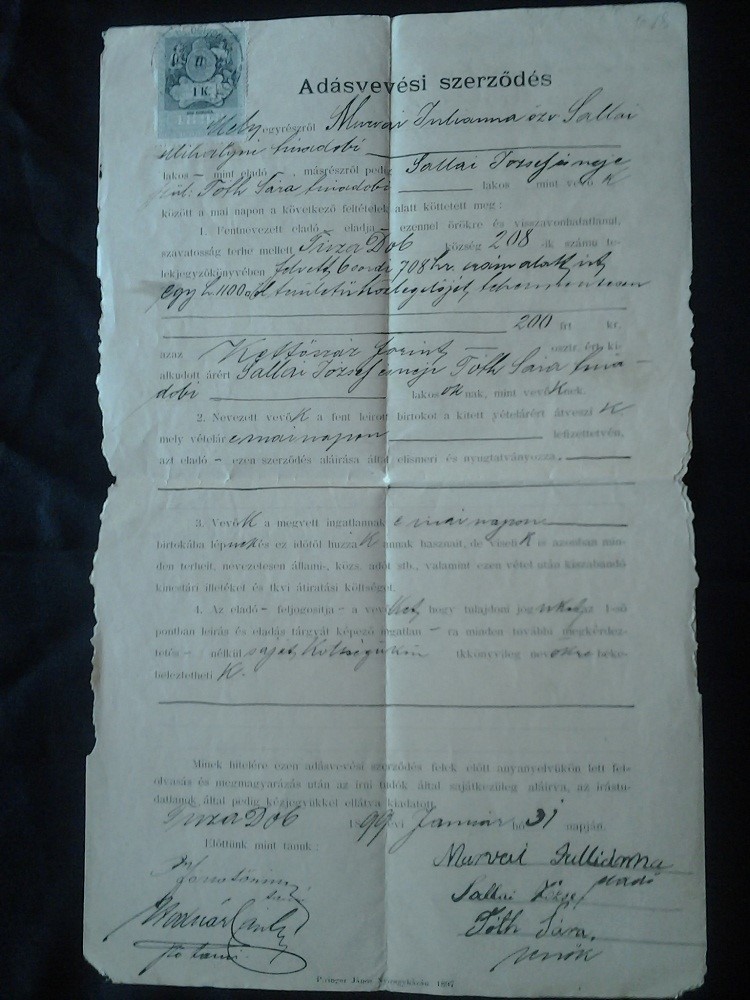 1 K
Adásvevési szerződés
Mely egyrészről Murvai Julianna özv Sallai
Mihályné tiszadobi
lakos – mint eladó , másrészről pedig Sallai József és neje
szül: Tóth Sára tiszadobi lakos mint vevő k
között a mai napon a következő feltételek alatt köttetett meg:
1. Fentnevezett eladó – eladja – ezennel örökre és visszavonhatatlanul,
szavatosság terhe mellett Tisza Dob község 208 -ik számu te-
lekjegyzőkönyvében felvett 708 hr. szám alatt irt
egy 1100 területű legelőjét, tehermentesen
200 frt kr.
azaz Kettőszáz forint osztr. ért. ki-
alkudott árért Sallai József és neje Tóth Sára tisza-
dobi lakosoknak, mint vevőknek.
2. Nevezett vevők a fent leirott birtokot a kitett vételárért átveszi k
mely vételár e mai napon lefizettetvén,
azt eladó – ezen szerződés aláirása által elismeri és nyugtatványozza.
3. Vevő k a megvett ingatlannak e mai napon
birtokába lépnek és ez időtől huzzák annak hasznait, de viseli k is azonban min-
den terheit, nevezetesen állami-, közs. adót stb., valamint ezen vétel után kiszabandó
kincstári illetéket és tkvi átiratási költséget.
4. Az eladó – feljogosítja – a vevőket, hogy tulajdoni jogukat az 1-ső
pontban leirás és eladás tárgyát képező ingatlan – ra minden további megkérdez-
tetés – nélkül saját költségükön tkkönyvileg nevökre beke-
beleztetheti k.
Minek hitelére ezen adásvevési szerződés felek előtt anyanyelvükön lett fel-
olvasás és megmagyarázás után az irni tudók által sajátkezüleg aláirva, az irástu-
datlanok által pedig kézjegyükkel ellátva kiadatott.
Tisza Dob 1899 évi Január hó 31 napján.
Előttünk mint tanuk:
Murvai Jullidanna
eladó
Sallai József
Tóth Sára,
vevők
Molnár
tanu
Peringer János Nyiregyházán 1897